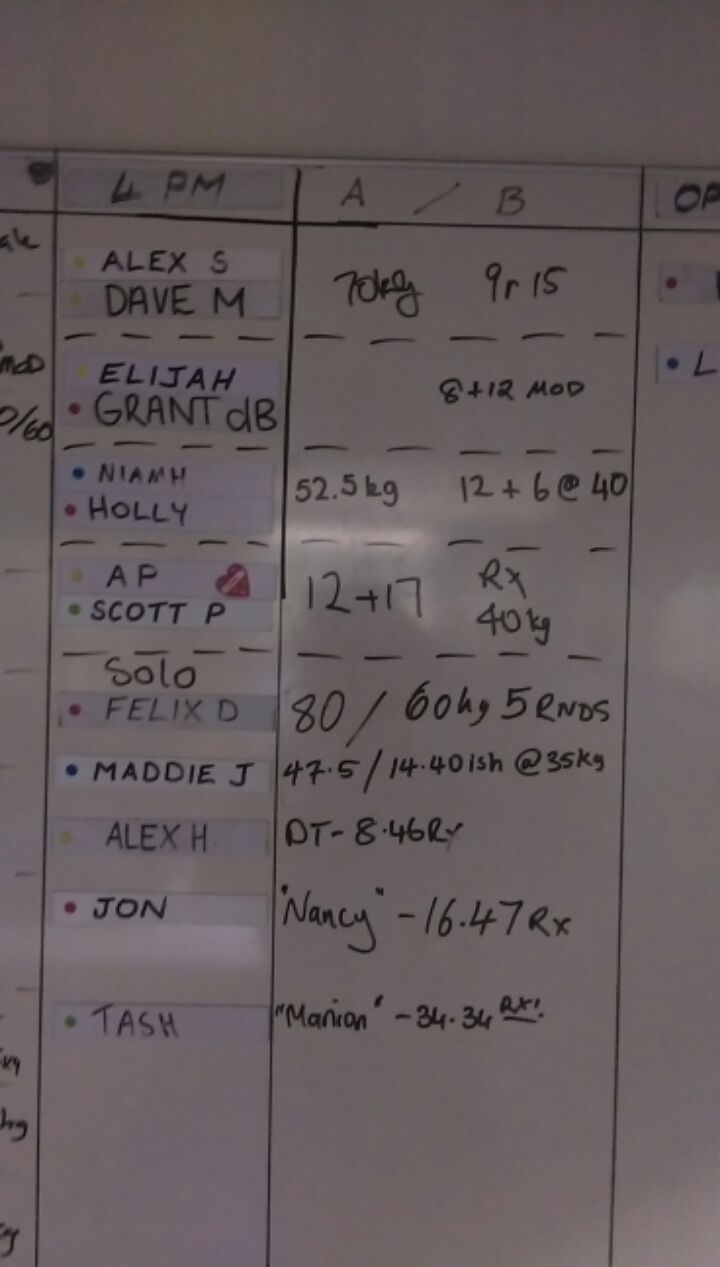 4 PM A / B OP
ale
ALEX S
DAVE M 70kg 9r 15
MOD
ELIJAH
GRANT dB 8+12 MOD
0/60
NIAMH
HOLLY 52.5kg 12 + 6 @ 40
L
AP
SCOTT P 12+17 Rx
40kg
Solo
FELIX D 80 / 60kg 5 RNDS
MADDIE J 47.5 / 14.40ish @35kg
ALEX H DT - 8.46 Rx
JON "Nancy" - 16.47 Rx
TASH "Manion" - 34.34 RX!